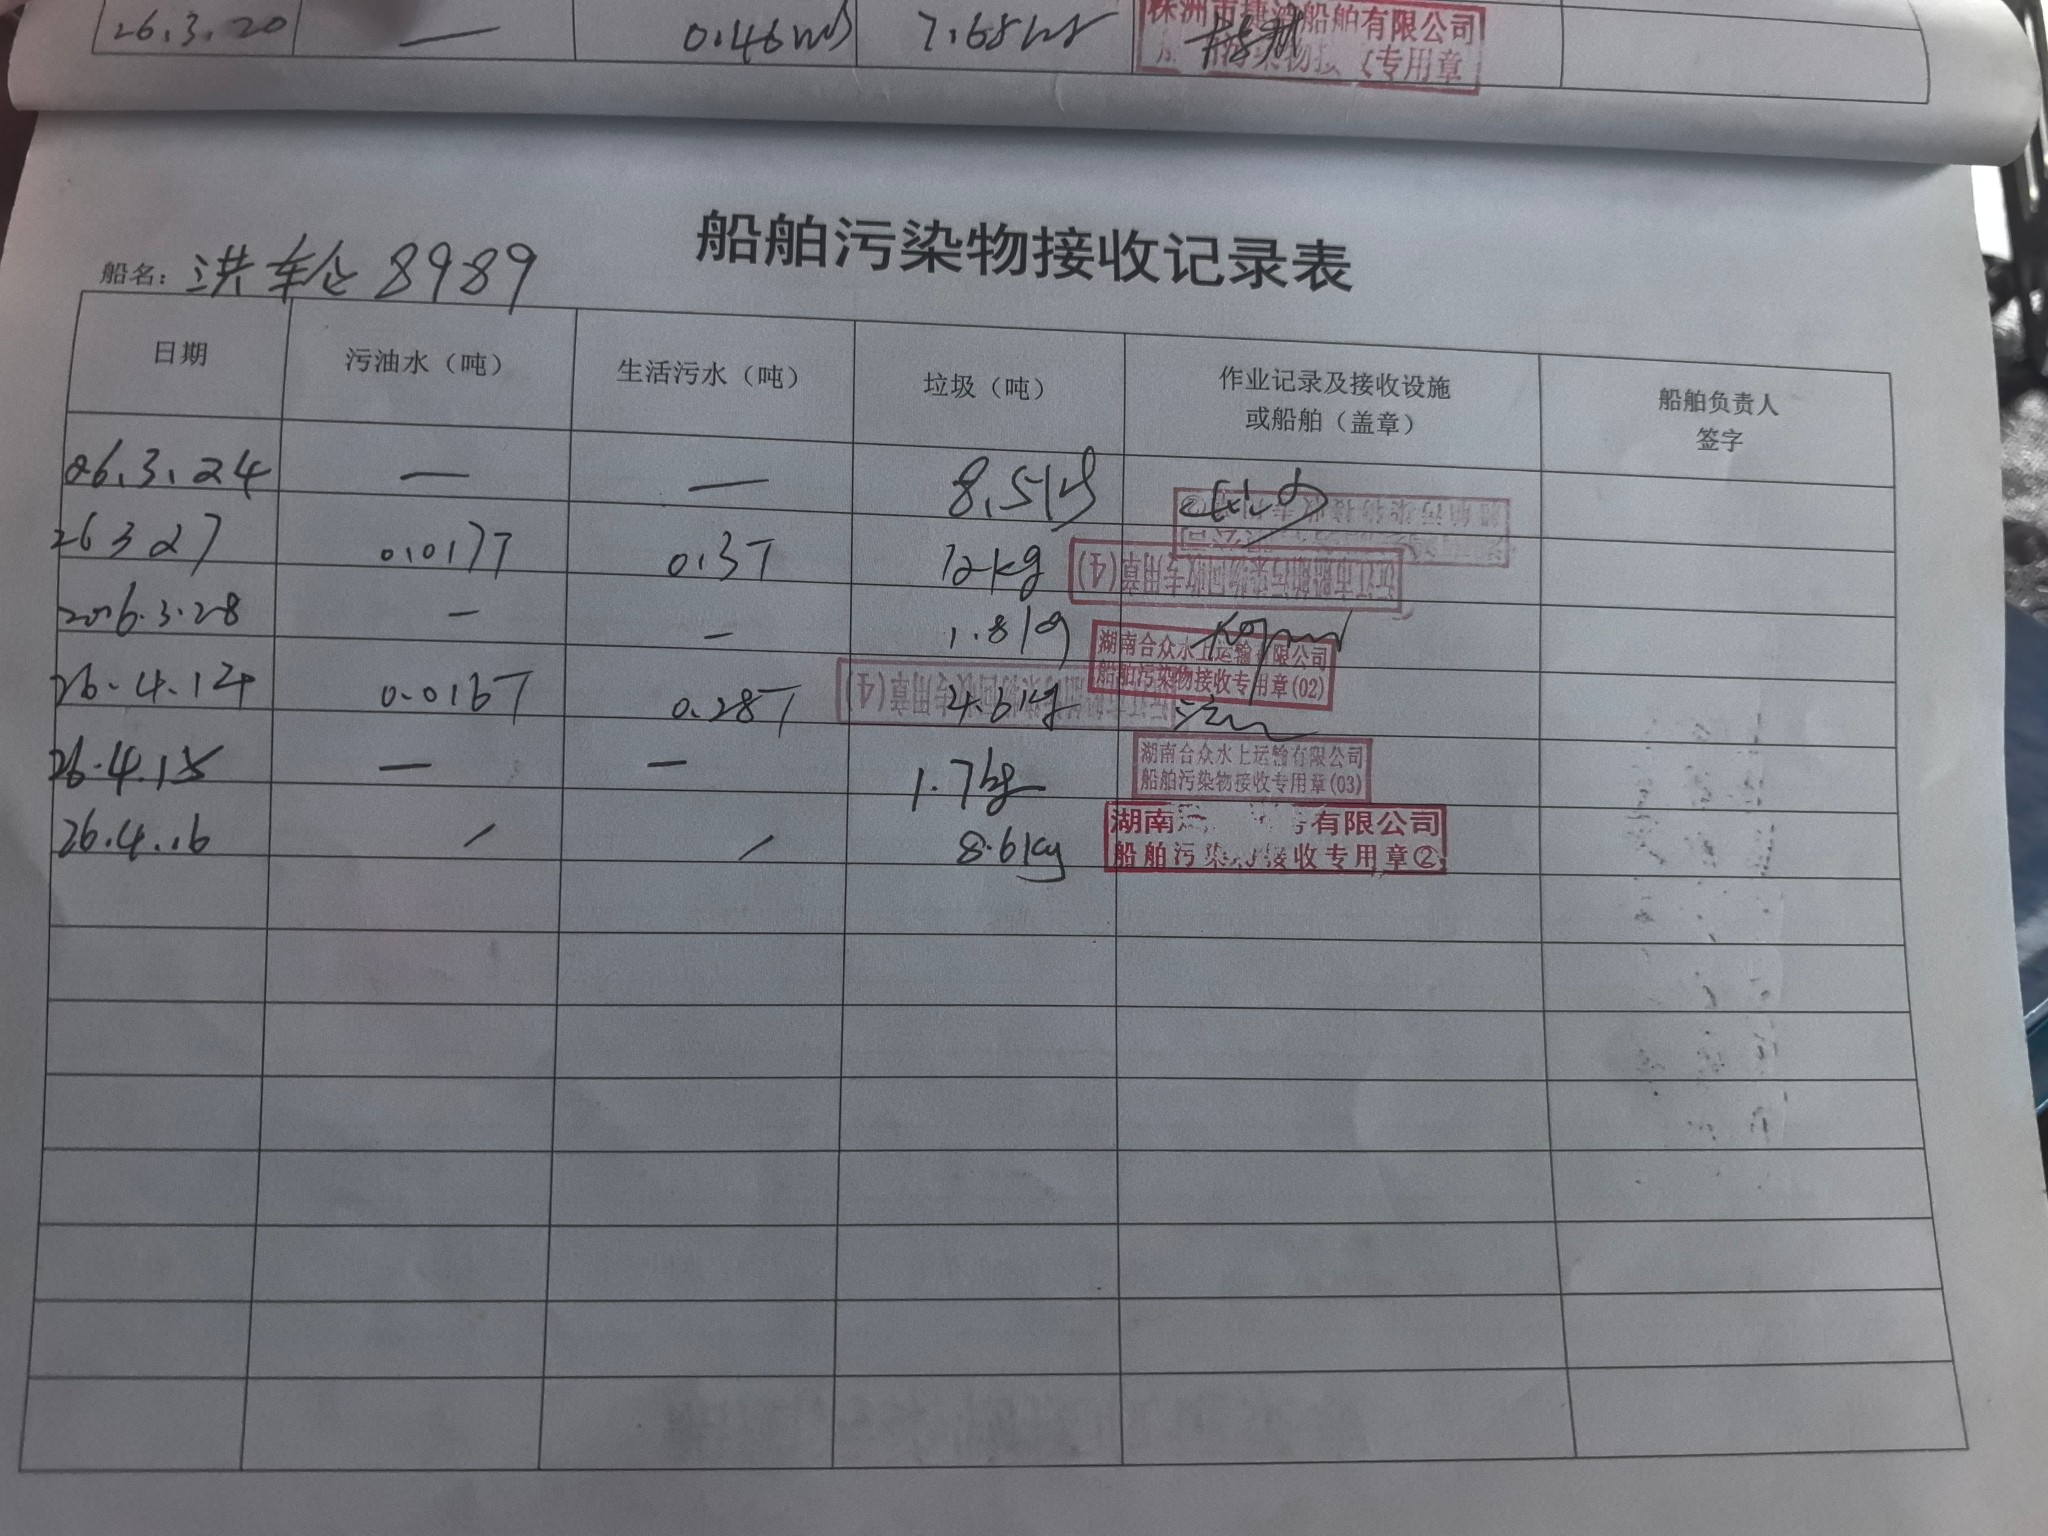 26.3.20 — 0.46m³ 7.68kg 株洲市捷 船舶有限公司
专用章
船舶污染物接收记录表
船名：洪轮8989
日期 污油水（吨） 生活污水（吨） 垃圾（吨） 作业记录及接收设施或船舶（盖章） 船舶负责人签字
26.3.24 — — 8.5kg
船舶污染物接收专用章②
26 3 27 0.017T 0.3T 12kg 沅江市船舶污染物回收专用章(4)
2026.3.28 — — 1.8kg 湖南合众水上运输有限公司
船舶污染物接收专用章(02)
26.4.14 0.016T 0.28T 4.6kg 沅江市船舶污染物回收专用章(4)
26.4.15 — — 1.7kg 湖南合众水上运输有限公司
船舶污染物接收专用章(03)
26.4.16 / / 8.6kg 湖南 有限公司
船舶污染物接收专用章②